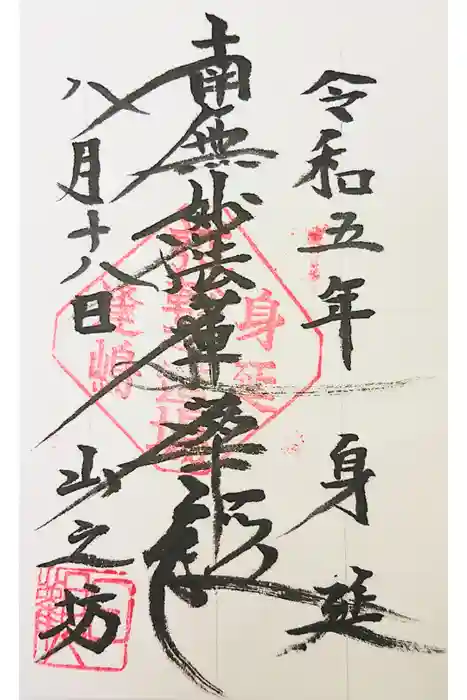 令和五年 身延
南無妙法蓮華経
八月十八日 山之坊
身延